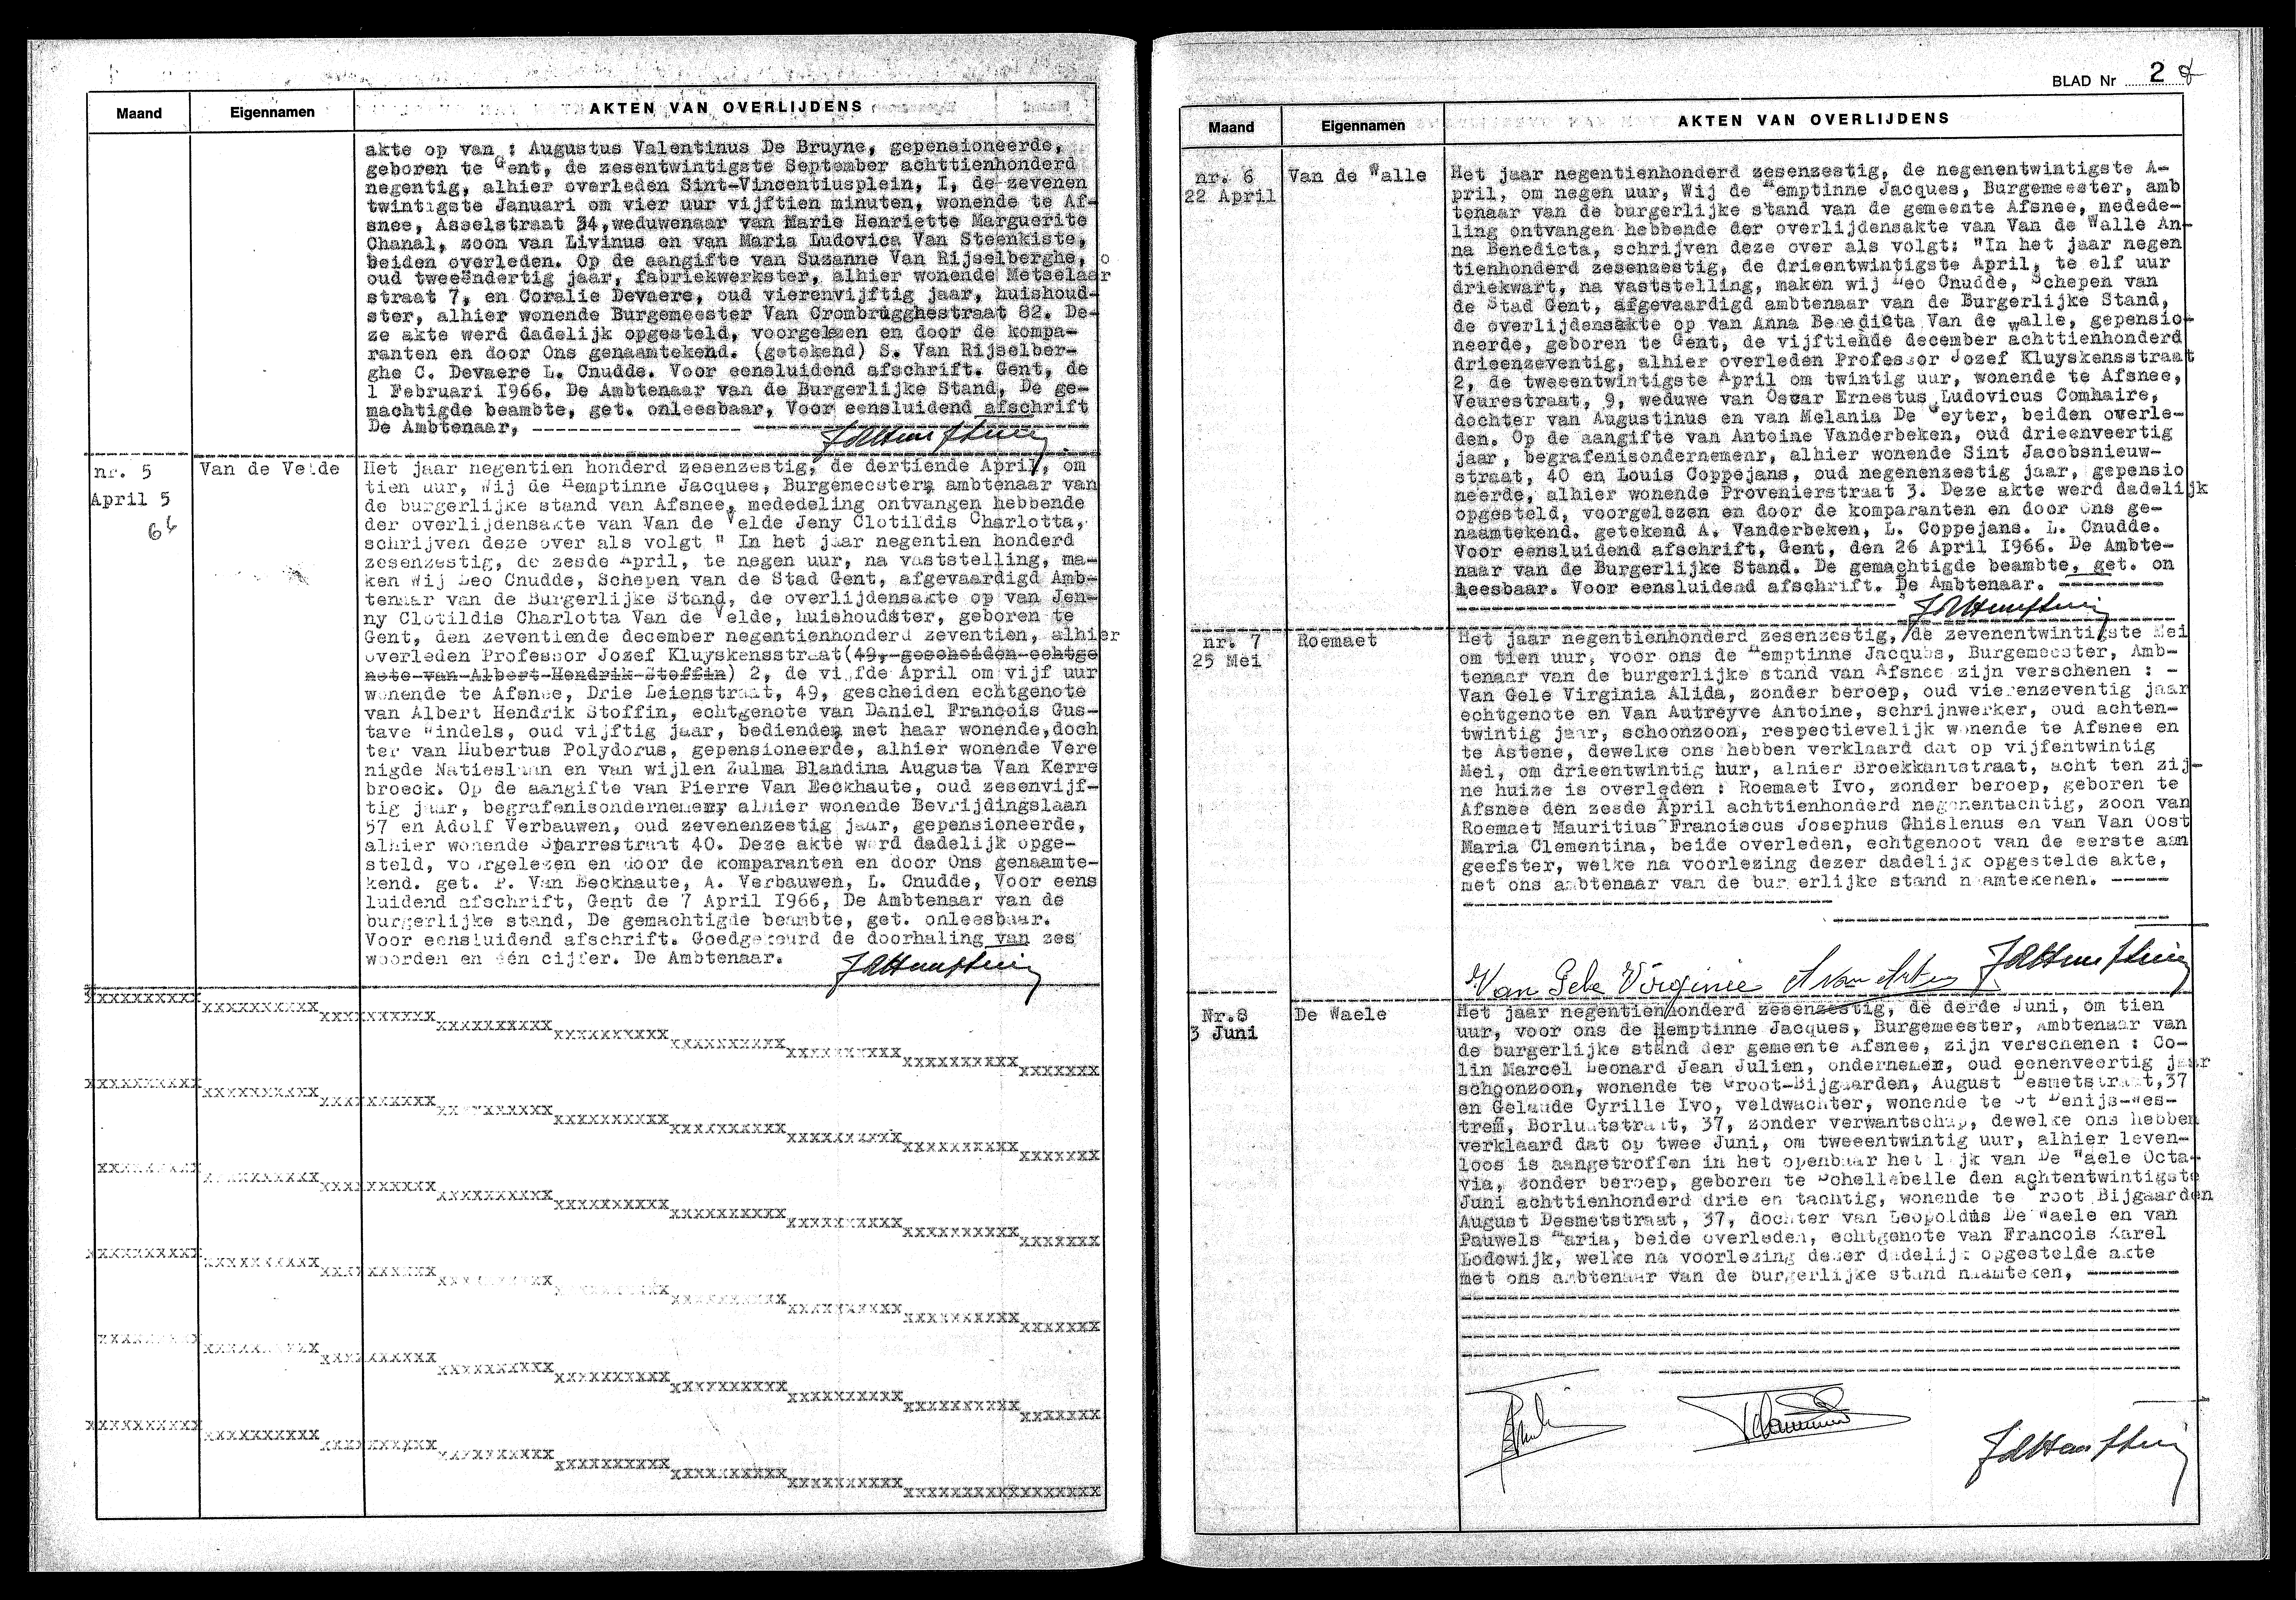 Maand
Eigennamen
AKTEN VAN OVERLIJDENS
akte op van : Augustus Valentinus De Bruyne, gepensioneerde,
geboren te Gent, de zesentwintigste September achttienhonderd
negentig, alhier overleden Sint-Vincentiusplein, I, de zevenen
twintigste Januari om vier uur vijftien minuten, wonende te Af-
snee, Asselstraat 34, weduwenaar van Marie Henriette Marguerite
Chanal, zoon van Livinus en van Maria Ludovica Van Steenkiste,
beiden overleden. Op de aangifte van Suzanne Van Rijselberghe,
oud tweeëndertig jaar, fabriekwerkster, alhier wonende Metselaer
straat 7, en Coralie Devaere, oud vierenvijftig jaar, huishoud-
ster, alhier wonende Burgemeester Van Crombrugghestraat 82. De-
ze akte werd dadelijk opgesteld, voorgelezen en door de kompa-
ranten en door Ons genaamtekend. (getekend) S. Van Rijselber-
ghe C. Devaere L. Cnudde. Voor eensluidend afschrift. Gent, de
1 Februari I966. De Ambtenaar van de Burgerlijke Stand, De ge-
machtigde beambte, get. onleesbaar, Voor eensluidend afschrift
De Ambtenaar,
nr. 5
April 5
66
Van de Velde
Het jaar negentien honderd zesenzestig, de dertiende April, om
tien uur, Wij de Hemptinne Jacques, Burgemeester, ambtenaar van
de burgerlijke stand van Afsnee, mededeling ontvangen hebbende
der overlijdensakte van Van de Velde Jeny Clotildis Charlotta,
schrijven deze over als volgt " In het jaar negentien honderd
zesenzestig, de zesde April, te negen uur, na vaststelling, ma-
ken Wij Leo Cnudde, Schepen van de Stad Gent, afgevaardigd Amb-
tenaar van de Burgerlijke Stand, de overlijdensakte op van Jen-
ny Clotildis Charlotta Van de Velde, huishoudster, geboren te
Gent, den zeventiende december negentienhonderd zeventien, alhier
overleden Professor Jozef Kluyskensstraat(49, gescheiden echtge
note van Albert Hendrik Stoffin) 2, de vijfde April om vijf uur
wonende te Afsnee, Drie Leienstraat, 49, gescheiden echtgenote
van Albert Hendrik Stoffin, echtgenote van Daniel Francois Gus-
tave Windels, oud vijftig jaar, bediende, met haar wonende, doch
ter van Hubertus Polydorus, gepensioneerde, alhier wonende Vere
nigde Natieslaan en van wijlen Zulma Blandina Augusta Van Kerre
broeck. Op de aangifte van Pierre Van Eeckhaute, oud zesenvijf-
tig jaar, begrafenisondernemer, alhier wonende Bevrijdingslaan
57 en Adolf Verbauwen, oud zevenenzestig jaar, gepensioneerde,
alhier wonende Sparrestraat 40. Deze akte werd dadelijk opge-
steld, voorgelezen en door de komparanten en door Ons genaamte-
kend. get. P. Van Eeckhaute, A. Verbauwen, L. Cnudde, Voor eens
luidend afschrift, Gent de 7 April I966, De Ambtenaar van de
burgerlijke stand, De gemachtigde beambte, get. onleesbaar.
Voor eensluidend afschrift. Goedgekeurd de doorhaling van zes
woorden en één cijfer. De Ambtenaar.
BLAD Nr 2
Maand
Eigennamen
AKTEN VAN OVERLIJDENS
nr. 6
22 April
Van de Walle
Het jaar negentienhonderd zesenzestig, de negenentwintigste A-
pril, om negen uur, Wij de Hemptinne Jacques, Burgemeester, amb
tenaar van de burgerlijke stand van de gemeente Afsnee, medede-
ling ontvangen hebbende der overlijdensakte van Van de Walle An-
na Benedicta, schrijven deze over als volgt: "In het jaar negen
tienhonderd zesenzestig, de drieentwintigste April, te elf uur
driekwart, na vaststelling, maken wij Leo Cnudde, Schepen van
de Stad Gent, afgevaardigd ambtenaar van de Burgerlijke Stand,
de overlijdensakte op van Anna Benedicta Van de Walle, gepensio-
neerde, geboren te Gent, de vijftiende december achttienhonderd
drieenzeventig, alhier overleden Professor Jozef Kluyskensstraat
2, de tweeentwintigste April om twintig uur, wonende te Afsnee,
Veurestraat, 9, weduwe van Oscar Ernestus Ludovicus Comhaire,
dochter van Augustinus en van Melania De Weyter, beiden overle-
den. Op de aangifte van Antoine Vanderbeken, oud drieenveertig
jaar, begrafenisondernemenr, alhier wonende Sint Jacobsnieuw-
straat, 40 en Louis Coppejans, oud negenenzestig jaar, gepensio
neerde, alhier wonende Provenierstraat 3. Deze akte werd dadelijk
opgesteld, voorgelezen en door de komparanten en door Ons ge-
naamtekend. getekend A. Vanderbeken, L. Coppejans. L. Cnudde.
Voor eensluidend afschrift, Gent, den 26 April I966. De Ambte-
naar van de Burgerlijke Stand. De gemachtigde beambte, get. on
leesbaar. Voor eensluidend afschrift. De Ambtenaar.
nr. 7
25 Mei
Roemaet
Het jaar negentienhonderd zesenzestig, de zevenentwintigste Mei
om tien uur, voor ons de Hemptinne Jacques, Burgemeester, Amb-
tenaar van de burgerlijke stand van Afsnee zijn verschenen : -
Van Gele Virginia Alida, zonder beroep, oud vierenzeventig jaar
echtgenote en Van Autreyve Antoine, schrijnwerker, oud achten-
twintig jaar, schoonzoon, respectievelijk wonende te Afsnee en
te Astene, dewelke ons hebben verklaard dat op vijfentwintig
Mei, om drieentwintig hur, alhier Broekkantstraat, acht ten zij-
ne huize is overleden : Roemaet Ivo, zonder beroep, geboren te
Afsnee den zesde April achttienhonderd negenentachtig, zoon van
Roemaet Mauritius Franciscus Josephus Ghislenus en van Van Oost
Maria Clementina, beide overleden, echtgenoot van de eerste aan
geefster, welke na voorlezing dezer dadelijk opgestelde akte,
met ons ambtenaar van de burgerlijke stand naamtekenen.
Van Gele Virginie
Nr.8
3 Juni
De Waele
Het jaar negentienhonderd zesenzestig, de derde Juni, om tien
uur, voor ons de Hemptinne Jacques, Burgemeester, Ambtenaar van
de burgerlijke stand der gemeente Afsnee, zijn verschenen : Co-
lin Marcel Leonard Jean Julien, ondernemer, oud eenenveertig jaar
schoonzoon, wonende te Groot-Bijgaarden, August Desmetstraat,37
en Gelaude Cyrille Ivo, veldwachter, wonende te St Denijs-Wes-
trem, Borluutstraat, 37, zonder verwantschap, dewelke ons hebben
verklaard dat op twee Juni, om tweeentwintig uur, alhier leven-
loos is aangetroffen in het openbaar het lijk van De Waele Octa-
via, zonder beroep, geboren te Schellebelle den achtentwintigste
Juni achttienhonderd drie en tachtig, wonende te Groot Bijgaarden
August Desmetstraat, 37, dochter van Leopoldus De Waele en van
Pauwels Maria, beide overleden, echtgenote van Francois Karel
Lodewijk, welke na voorlezing dezer dadelijk opgestelde akte
met ons ambtenaar van de burgerlijke stand naamteken,